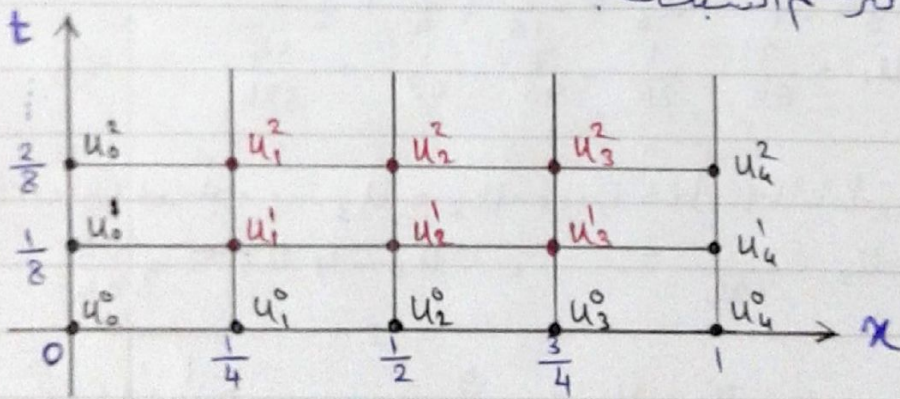 t
2/8 u₀² u₁² u₂² u₃² u₄²
1/8 u₀¹ u₁¹ u₂¹ u₃¹ u₄¹
u₀⁰ u₁⁰ u₂⁰ u₃⁰ u₄⁰
0 1/4 1/2 3/4 1 x